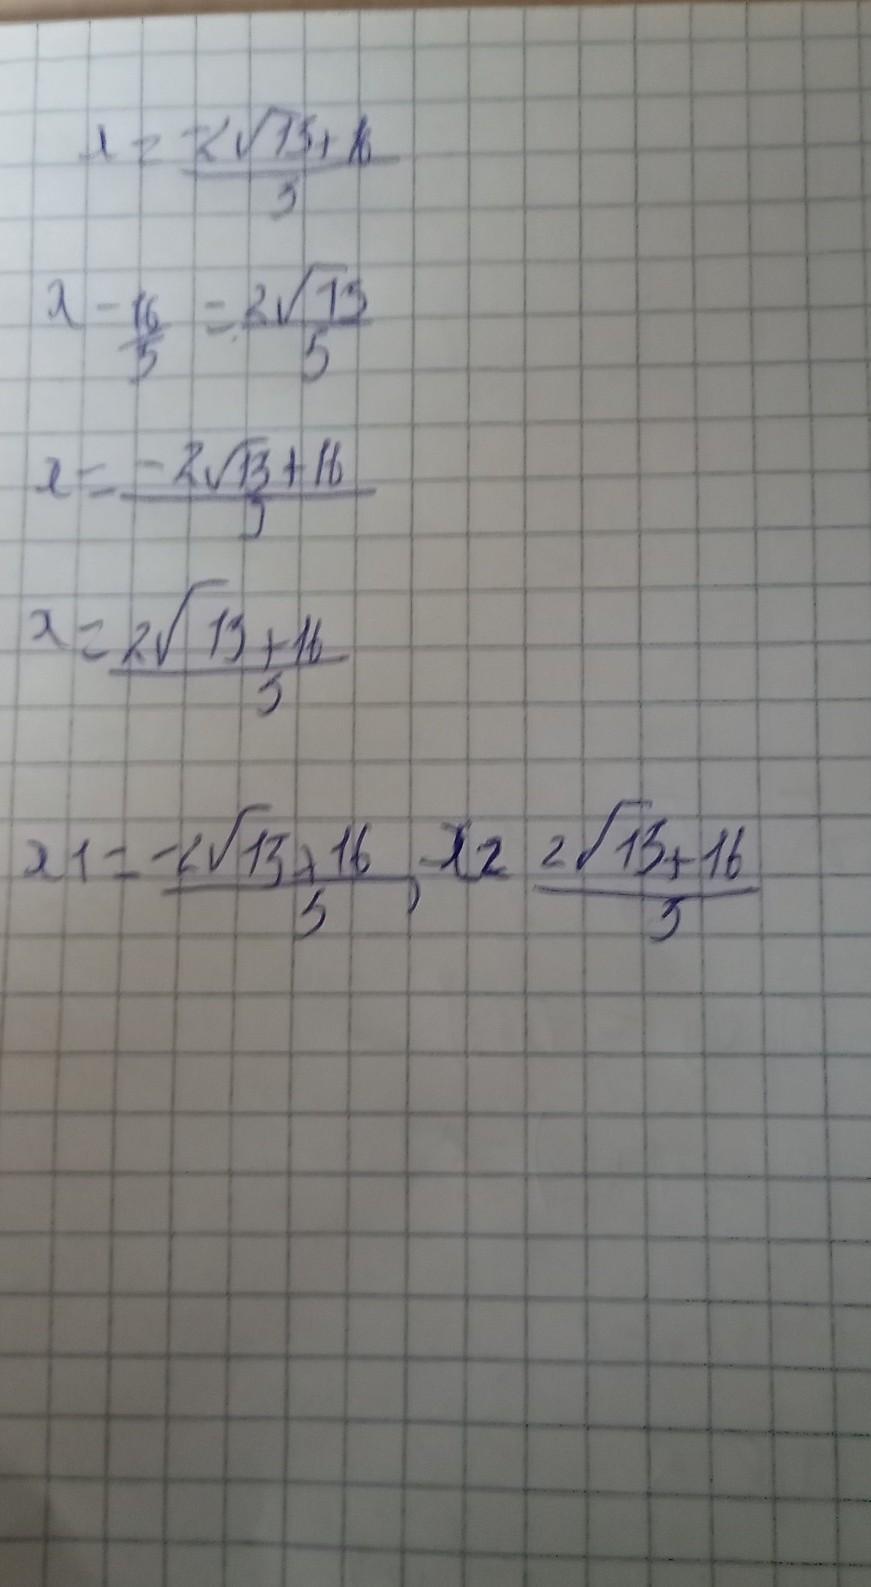 x = -2√13+16 / 5
x - 16/5 = 2√13 / 5
x = -2√13+16 / 5
x = 2√13+16 / 5
x1 = -2√13+16 / 5, x2 2√13+16 / 5